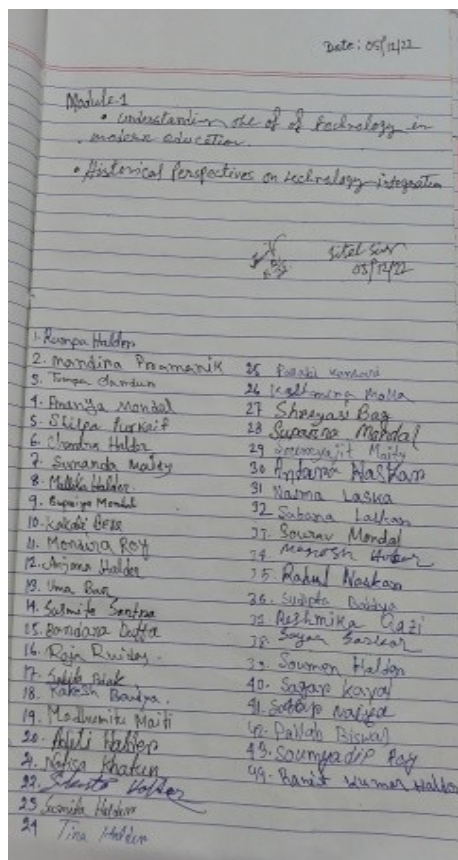 Date: 05/12/22
Module-1
• understanding the of of technology in
modern education.
• Historical Perspectives on technology integration
05/12/22
1. Rumpa Halder
2. Mandira Pramanik
3. Tumpa
4. Ananya Mondal
5. Shilpa Purkait
6. Chandra Halder
7. Sunanda Maity
8. Mallika Halder.
9. Supriya Mondal
10. Kakali Bera
11. Mondira Roy
12. Anjana Halder
13. Uma Bar
14. Susmita Santra
15. Bandana Dutta
16. Raja Ruidas.
17.
18. Rakesh Baidya.
19. Madhumita Maiti
20. Halder
21. Nafisa Khatun
22. Halder
23 Susmita Halder
24 Tina Halder
25
26 Molla
27 Shreyasi Bag
28 Suparna Mondal
29 Maity
30 Andana Naskar
31 Nasma Laska
32 Sabana Laskar
33. Sourav Mondal
34.
35. Rahul Naskar
36. Sudipta Baidya
37. Reshmika Gazi
38. Sayan Sarkar
39. Soumen Halder
40. Sagar Kayal
41. Naiya
42. Pallab Biswal
43. Soumyadip Roy
44. Ranit Kumar Halder